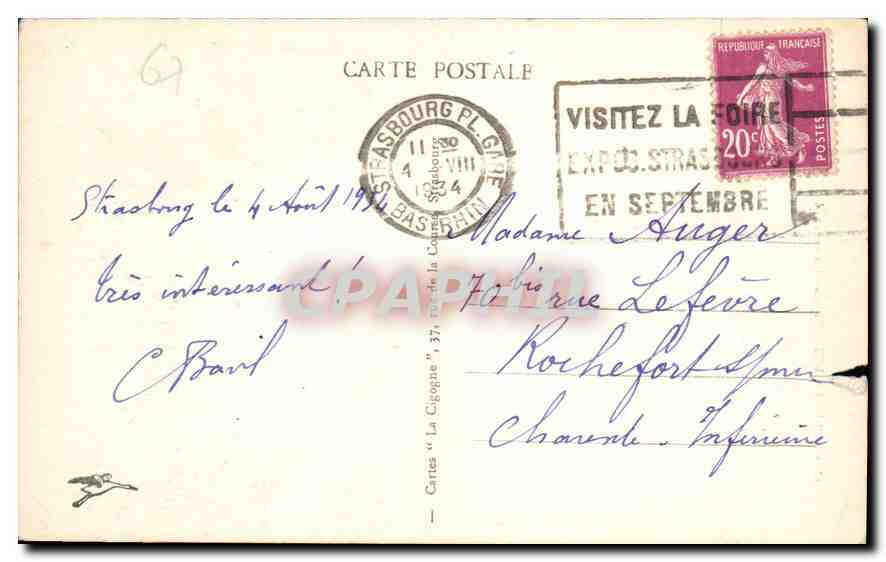 67
CARTE POSTALE
STRASBOURG PL. GARE
11 30
4 VIII
1934
BAS-RHIN
VISITEZ LA FOIRE
EXPOS. STRASBOURG
EN SEPTEMBRE
REPUBLIQUE FRANÇAISE
20c
POSTES
Strasbourg le 4 Août 1934
très intéressant !
C Bavil
Madame Auger
70 bis rue Lefèvre
Rochefort s/mer
Charente-Inférieure
Cartes "La Cigogne", 37, rue de la Course Strasbourg
1
CPAPHIL